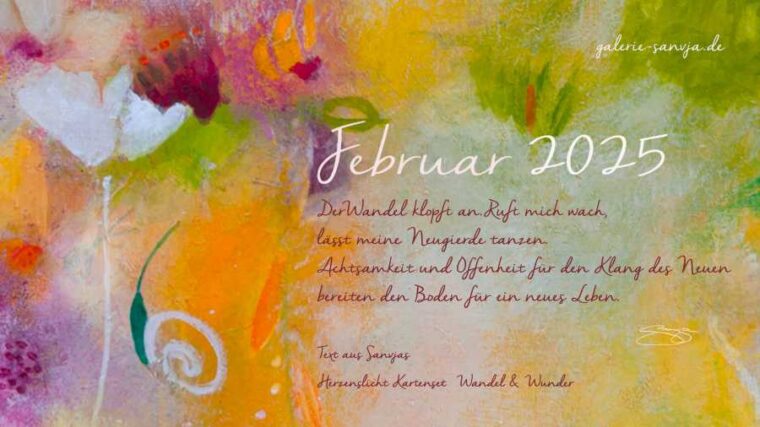 galerie-sanvja.de
Februar 2025
Der Wandel klopft an. Ruft mich wach,
lässt meine Neugierde tanzen.
Achtsamkeit und Offenheit für den Klang des Neuen
bereiten den Boden für ein neues Leben.
Text aus Sanvjas
Herzenslicht Kartenset Wandel & Wunder